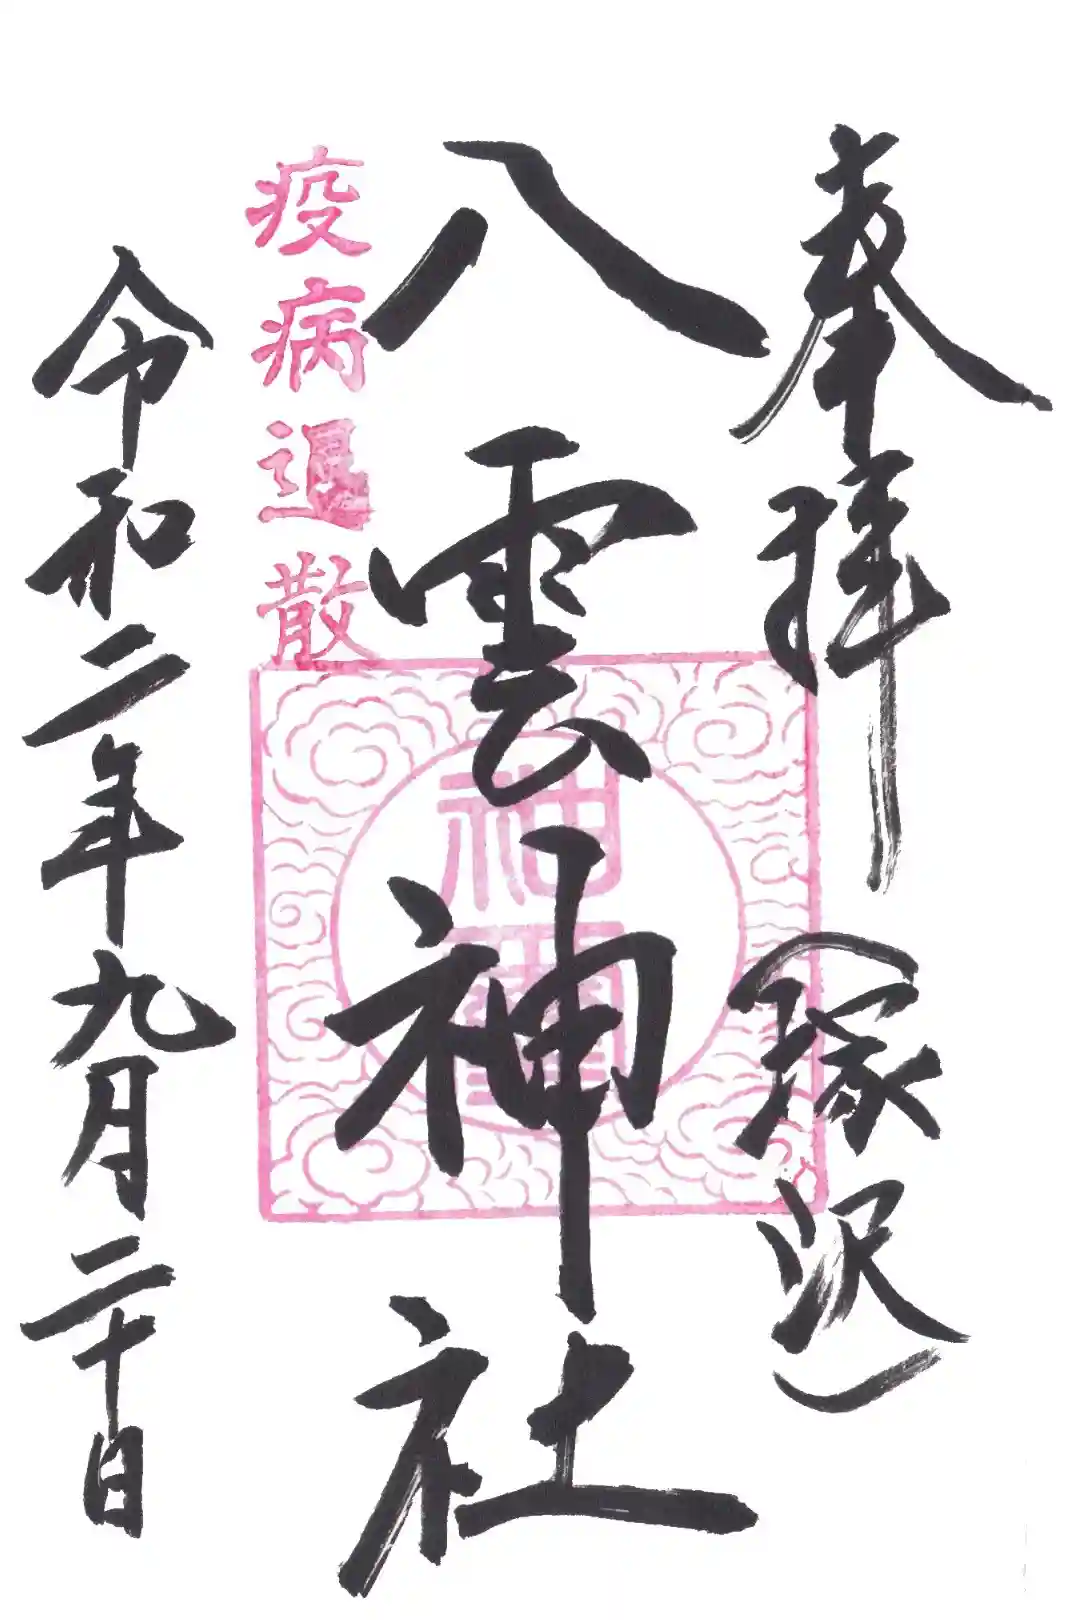 奉拝（塚沢）
八雲神社
疫病退散
神璽
令和二年九月二十日